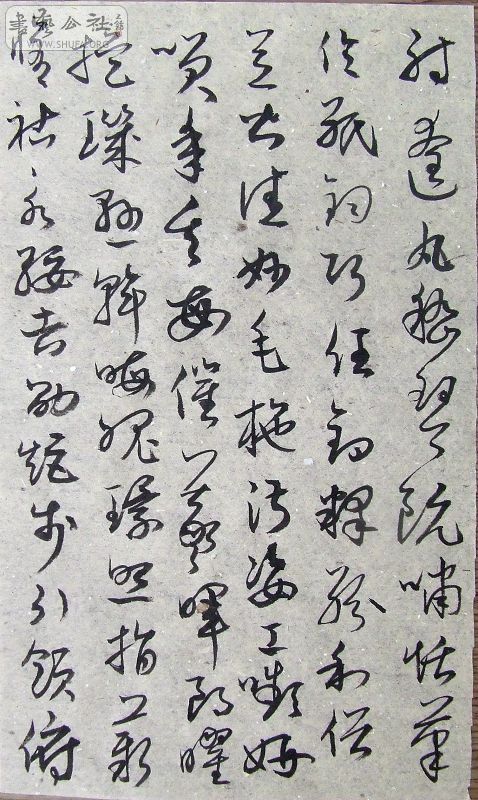 書藝公社
WWW.SHUFA.ORG
射遼丸嵇琴阮嘯恬筆
倫紙鈞巧任釣釋紛利俗
並皆佳妙毛施淑姿工嚬妍
笑年矢每催羲暉朗曜
旋璣懸斡晦魄環照指薪
修祜永綏吉劭矩步引領俯